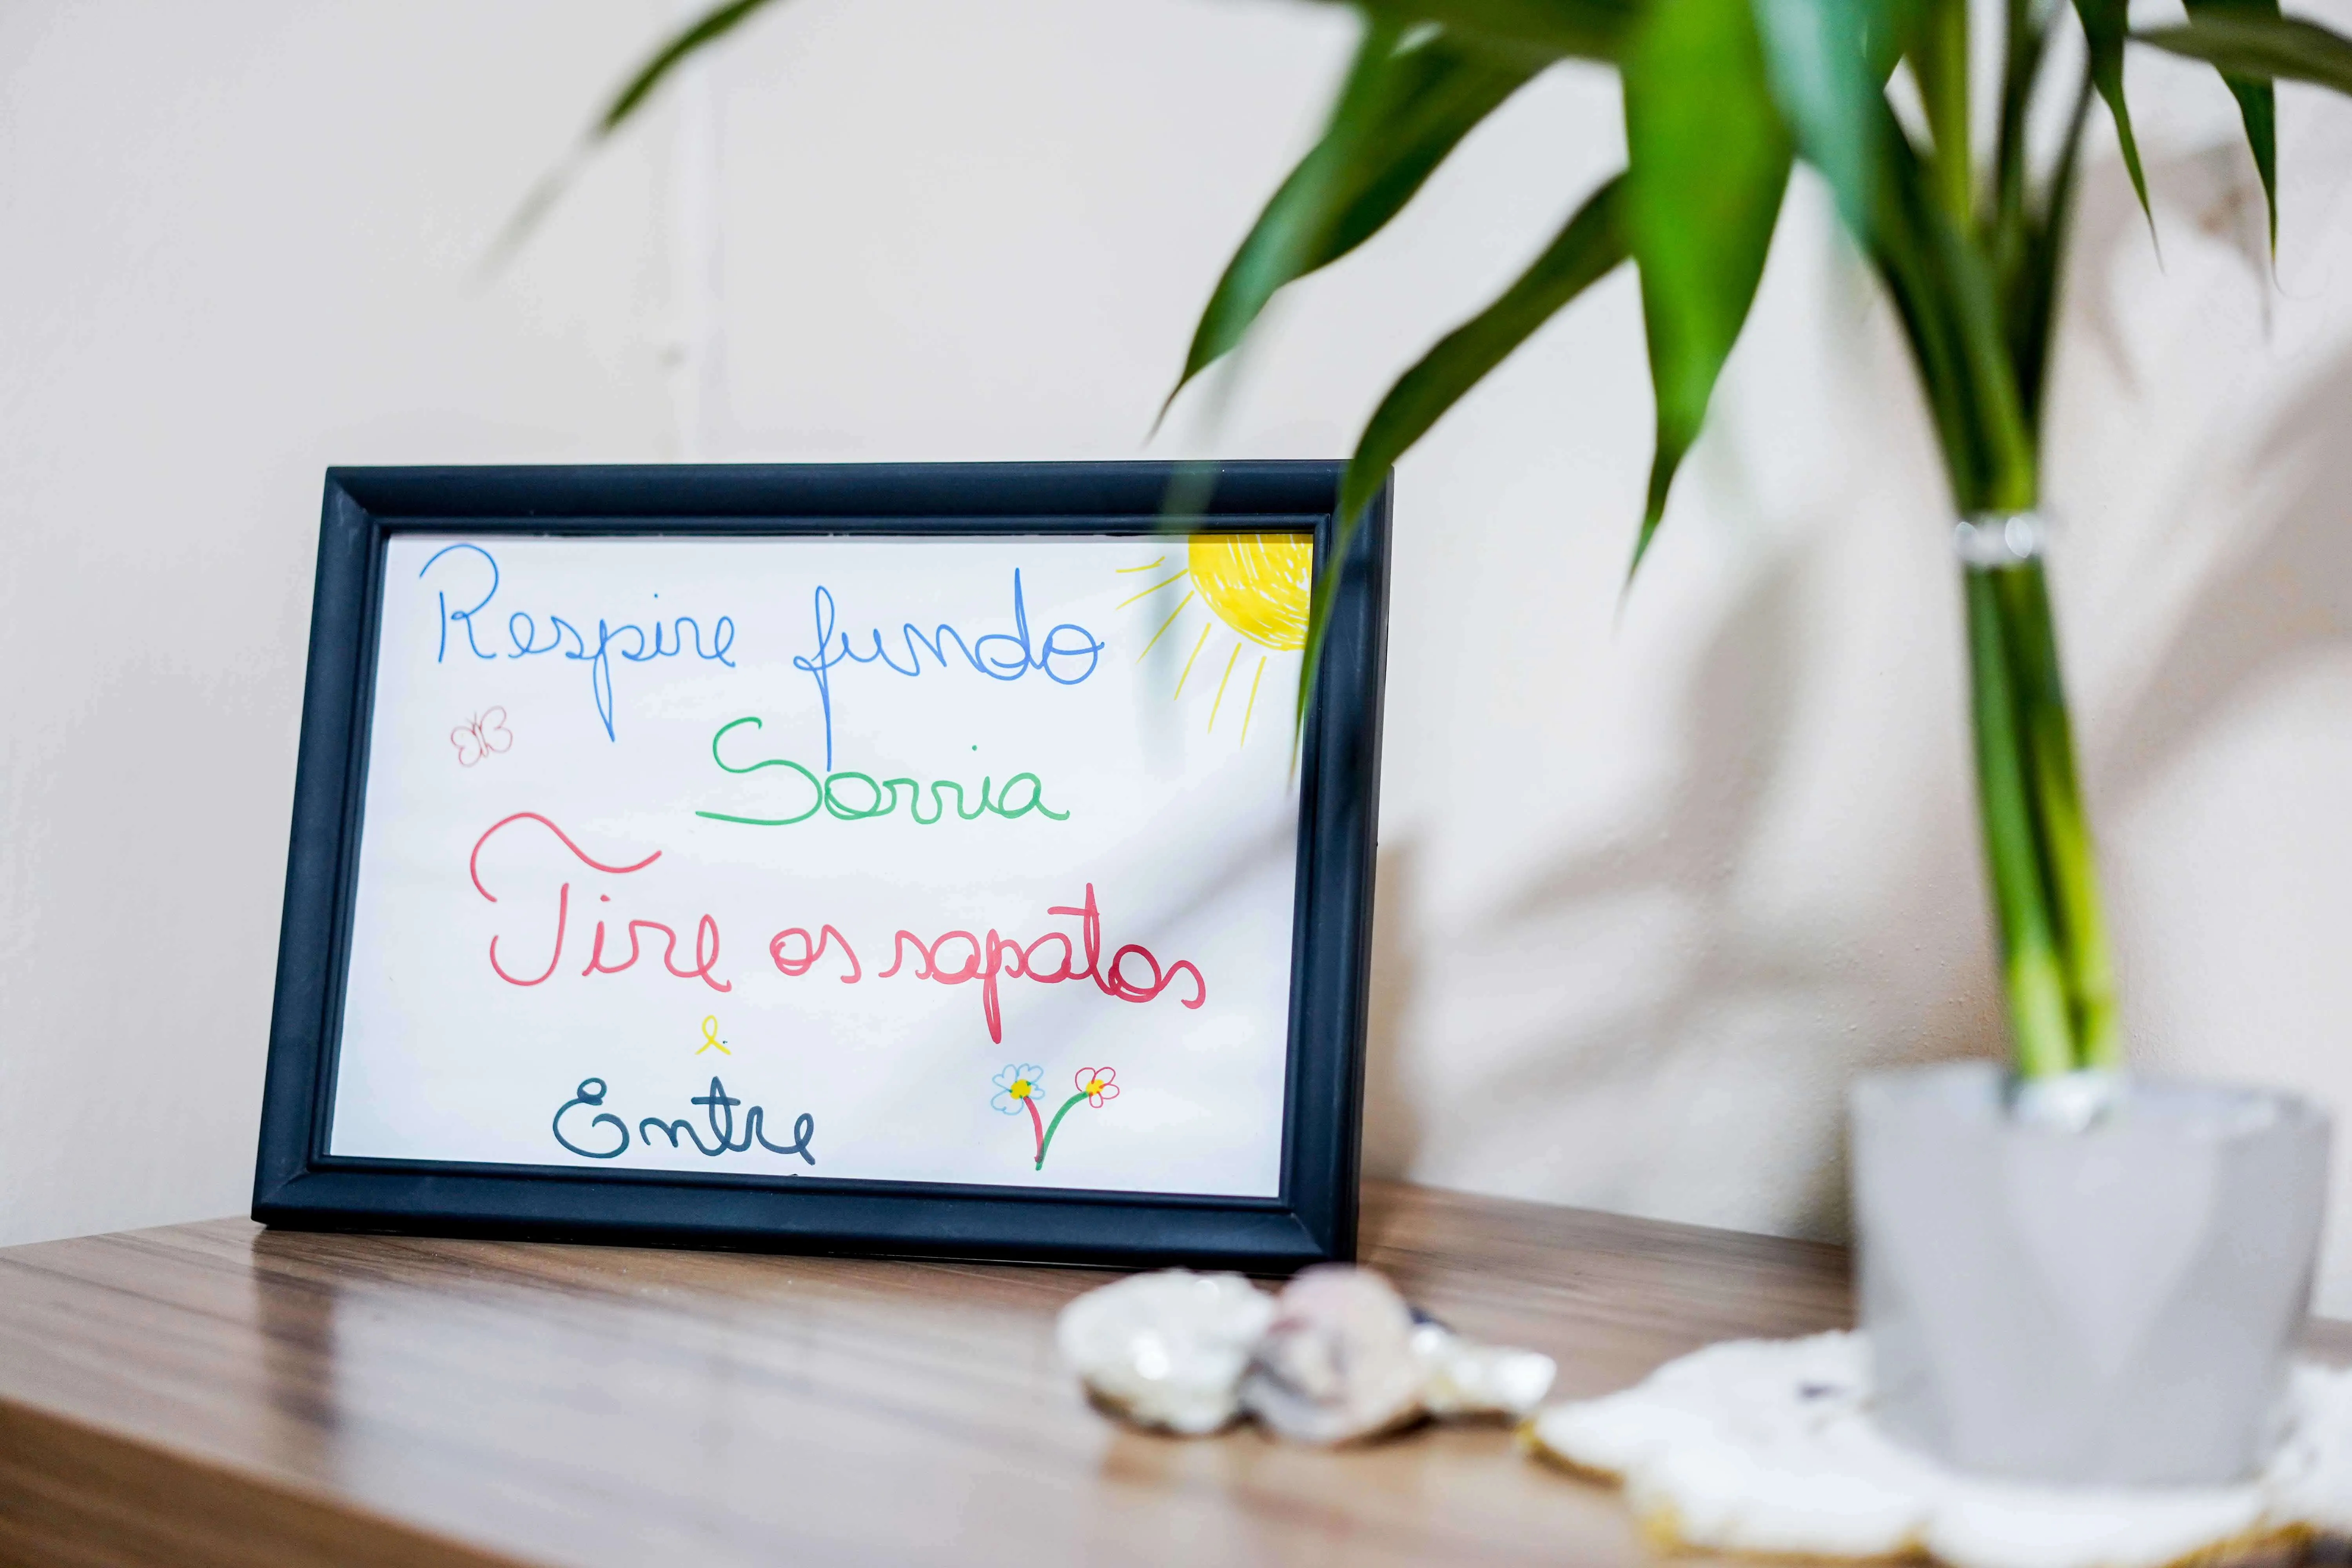 Respire fundo
Sorria
Tire os sapatos
e
Entre